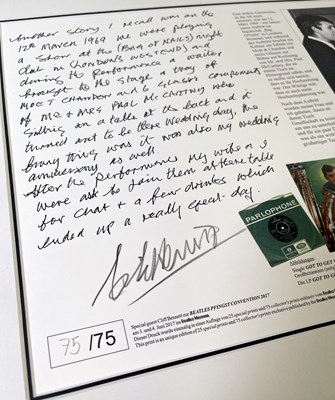 Another story I recall was on the
12th March 1969 we were playing
a show at the (Bag of Nails) night
club in (London's Westend)
during the performance a waiter
brought to the stage a tray of
Moet Chandon and 6 glasses compliments
of Mr & Mrs Paul McCartney who
sitting on a table at the back and it
turned out to be there wedding day, the
funny thing was it was also my wedding
anniversary as well.
After the performance my wife & I
were ask to join them at there table
for chat & a few drinks which
ended up a really great day.
75/75
Special guest Cliff Bennett zur BEATLES PFINGST CONVENTION 2017
am 3. und 4. Juni 2017 im Beatles Museum.
Dieser Druck wurde einmalig in einer Auflage von 25 special prints und 75 collector's prints exklusiv vom
This print is an unique edition of 25 special prints and 75 collector's prints exclusive published by the
PARLOPHONE
Abbildungen:
Single GOT TO GET
Großbritannien
Die LP GOT TO GET
Nach dem